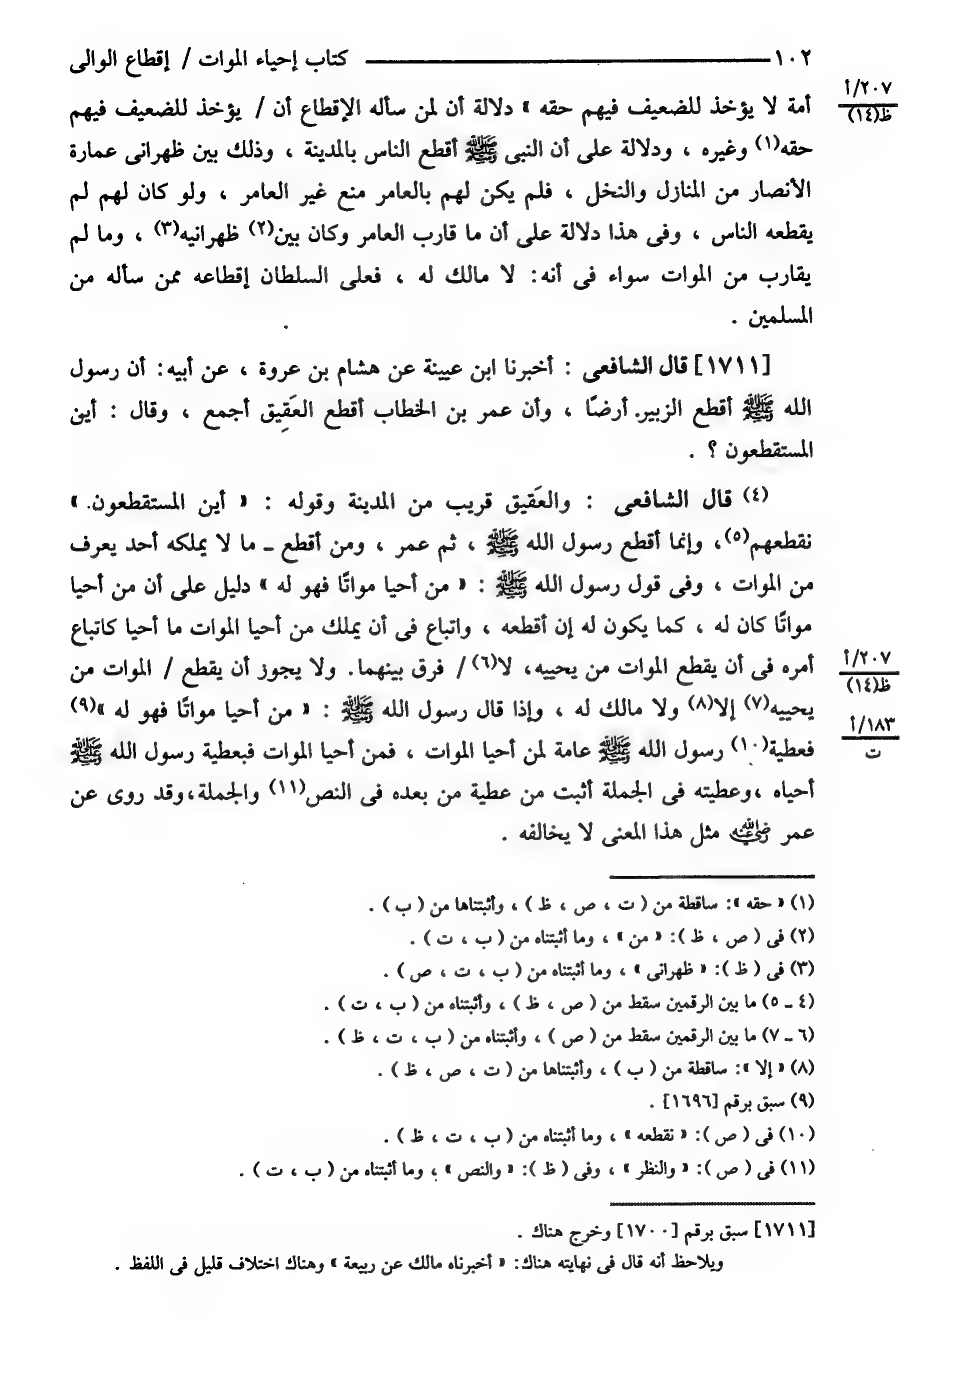 ١٠٢ ــــــــــــــــ كتاب إحياء الموات / إقطاع الوالى
٢٠٧/أ
ظ(١٤)
أمة لا يؤخذ للضعيف فيهم حقه » دلالة أن لمن سأله الإقطاع أن / يؤخذ للضعيف فيهم
حقه(١) وغيره ، ودلالة على أن النبى ﷺ أقطع الناس بالمدينة ، وذلك بين ظهرانى عمارة
الأنصار من المنازل والنخل ، فلم يكن لهم بالعامر منع غير العامر ، ولو كان لهم لم
يقطعه الناس ، وفى هذا دلالة على أن ما قارب العامر وكان بين(٢) ظهرانيه(٣) ، وما لم
يقارب من الموات سواء فى أنه: لا مالك له ، فعلى السلطان إقطاعه ممن سأله من
المسلمين .
[١٧١١] قال الشافعى : أخبرنا ابن عيينة عن هشام بن عروة ، عن أبيه: أن رسول
الله ﷺ أقطع الزبير. أرضًا ، وأن عمر بن الخطاب أقطع العَقِيق أجمع ، وقال : أين
المستقطعون ؟ .
(٤) قال الشافعى : والعَقيق قريب من المدينة وقوله : « أين المستقطعون. »
نقطعهم(٥)، وإنما أقطع رسول الله ﷺ ، ثم عمر ، ومن أقطع ـ ما لا يملكه أحد يعرف
من الموات ، وفى قول رسول الله ﷺ : « من أحيا مواتًا فهو له » دليل على أن من أحيا
مواتًا كان له ، كما يكون له إن أقطعه ، واتباع فى أن يملك من أحيا الموات ما أحيا كاتباع
أمره فى أن يقطع الموات من يحييه، لا(٦) / فرق بينهما. ولا يجوز أن يقطع / الموات من
٢٠٧/أ
ظ(١٤)
يحييه(٧) إلا(٨) ولا مالك له ، وإذا قال رسول الله ﷺ : « من أحيا مواتًا فهو له »(٩)
١٨٣/أ
ت
فعطية(١٠) رسول الله ﷺ عامة لمن أحيا الموات ، فمن أحيا الموات فبعطية رسول الله ﷺ
أحياه ،وعطيته فى الجملة أثبت من عطية من بعده فى النص(١١) والجملة،وقد روى عن
عمر رضي الله عنه مثل هذا المعنى لا يخالفه .
(١) « حقه »: ساقطة من ( ت ، ص ، ظ ) ، وأثبتناها من ( ب ) .
(٢) فى ( ص ، ظ ): « من » ، وما أثبتناه من ( ب ، ت ) .
(٣) فى ( ظ ): « ظهرانى » ، وما أثبتناه من ( ب ، ت ، ص ) .
(٤ ـ ٥) ما بين الرقمين سقط من ( ص ، ظ ) ، وأثبتناه من ( ب ، ت ) .
(٦ ـ ٧) ما بين الرقمين سقط من ( ص ) ، وأثبتناه من ( ب ، ت ، ظ ) .
(٨) « إلا »: ساقطة من ( ب ) ، وأثبتناها من ( ت ، ص ، ظ ) .
(٩) سبق برقم [١٦٩٦] .
(١٠) فى ( ص ): « نقطعه » ، وما أثبتناه من ( ب ، ت ، ظ ) .
(١١) فى ( ص ): « والنظر » ، وفى ( ظ ): « والنص » ، وما أثبتناه من ( ب ، ت ) .
[١٧١١] سبق برقم [١٧٠٠] وخرج هناك .
ويلاحظ أنه قال فى نهايته هناك: « أخبرناه مالك عن ربيعة » وهناك اختلاف قليل فى اللفظ .